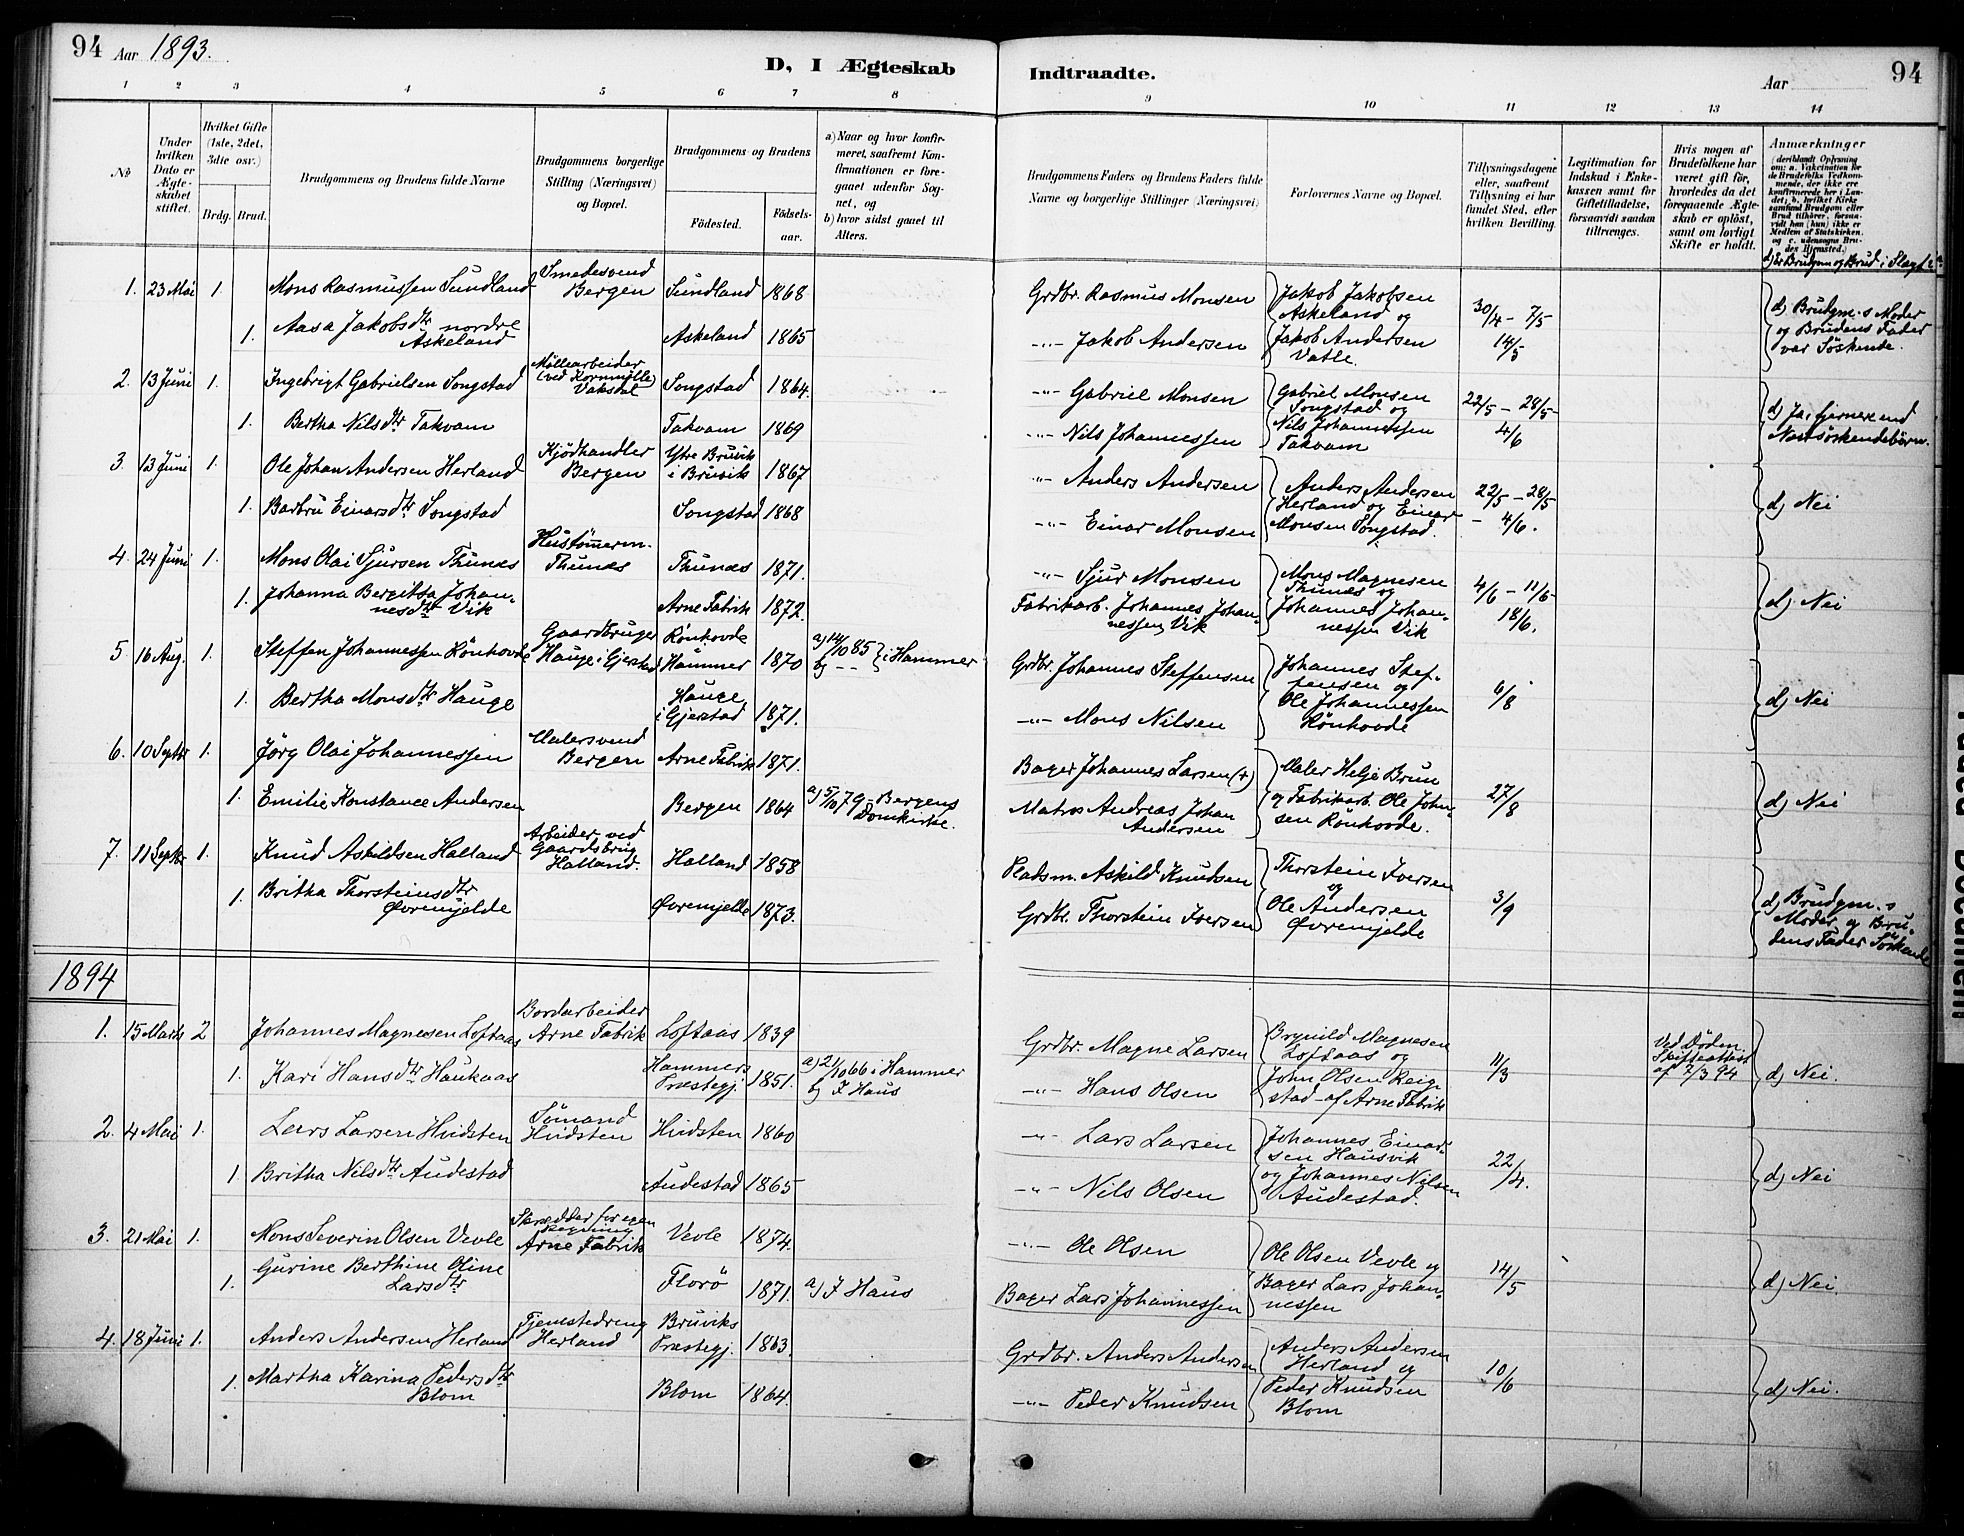 94 Aar 1893.
D, I Ægteskab
Indtraadte.
Aar
94
1 2 3 4 5 6 7 8
9 10 11 12 13 14
No
Under hvilken Dato er Ægteskabet stiftet.
Hvilket Gifte (1ste, 2det, 3die osv.)
Brdg. Brud.
Brudgommens og Brudens fulde Navne
Brudgommens borgerlige Stilling (Næringsvei) og Bopæl.
Brudgommens og Brudens
Fødested.
Fødselsaar.
a) Naar og hvor konfirmeret, saafremt Konfirmationen er foregaaet udenfor Sognet, og
b) hvor sidst gaaet til Alters.
Brudgommens Faders og Brudens Faders fulde Navne og borgerlige Stillinger (Næringsvei)
Forlovernes Navne og Bopæl.
Tillysningsdagene eller, saafremt Tillysning ei har fundet Sted, efter hvilken Bevilling.
Legitimation for Indskud i Enkekassen samt for Giftetilladelse, forsaavidt saadan tiltrænges.
Hvis nogen af Brudefolkene har været gift før, hvorledes da det foregaaende Ægteskab er opløst, samt om lovligt Skifte er holdt.
Anmærkninger
(deriblandt Oplysning om: a. Vaccination for de Brudefolks Vedkommende, der ikke ere konfirmerede her i Landet; b. hvilket Kirkesamfund Brudgom eller Brud tilhører, forsaavidt han (hun) ikke er Medlem af Statskirken, og c. udensogns Brudes Hjemsted.)
d) Er Brudgom og Brud i Slægt?
1. 23 Mai 1. Mons Rasmussen Sundland Smedesvend Bergen Sundland 1868 Grdbr. Rasmus Monsen Jakob Jakobsen Askeland og 30/4 - 7/5 d) Brudgm.s Moder
1. Aasa Jakobsdtr nordre Askeland Askeland 1865 -"- Jakob Andersen Jakob Andersen Vatle. 14/5 og Brudens Fader var Søskende.
2. 13 Juni 1. Ingebrigt Gabrielsen Songstad Møllearbeider (ved Kornmølle) Vaksdal Songstad 1864. -"- Gabriel Monsen Gabriel Monsen Songstad og 22/5 - 28/5 d) Ja,
1. Bertha Nilsdtr Takvam Takvam 1869 -"- Nils Johannessen Nils Johannessen Takvam 4/6 Næstsøskendebørn.
3. 13 Juni 1. Ole Johan Andersen Herland Kjødhandler Bergen Ytre Bruvik i Bruvik 1867 -"- Anders Andersen Anders Andersen Herland og Einar 22/5 - 28/5 d) Nei
1. Barbru Einarsdtr Songstad Songstad 1868 -"- Einar Monsen Monsen Songstad. - 4/6.
4. 24 Juni 1. Mons Olai Sjursen Thunæs Hustömerm. Thunæs Thunæs 1871. -"- Sjur Monsen Mons Magnesen Thunæs og 4/6 - 11/6 - d) Nei
1. Johanna Bergitta Johannesdtr Vik Arne Fabrik 1872. Fabrikarb. Johannes Johannessen Vik Johannes Johannessen Vik 18/6.
5 16 Aug. 1. Steffen Johannessen Rönhovde Gaardbruger Hauge i Gjerstad Rönhovde Hammer 1870 a) 14/10 85 b) - - i Hammer Grdbr. Johannes Steffensen Johannes Steffensen og 6/8 d) Nei
1. Bertha Monsdtr Hauge Hauge i Gjerstad 1871. -"- Mons Nilsen Ole Johannessen Rönhovde
6. 10 Septbr 1. Jørg Olai Johannessen Malersvend Bergen Arne Fabrik 1871. Bager Johannes Larsen (+) Maler Helje Brun 27/8 d) Nei
1. Emilie Konstance Andersen Bergen 1864 a) 5/10 79 - Bergens Domkirke. Matros Andreas Johan Andersen og Fabrikarb. Ole Johnsen Rönhovde.
7. 11 Septbr 1. Knud Askildsen Halland Arbeider ved Gaardsbrug Halland. Halland 1858 Pladsm. Askild Knudsen Thorstein Iversen og 3/9 d) Brudgm.s
1. Britha Thorsteinsdtr Øvremjelde Øvremjelde 1873. Grdbr. Thorstein Iversen Ole Andersen Øvremjelde Moder og Brudens Fader Søskende
1894
1. 15 Marts 2 Johannes Magnesen Loftaas Bordarbeider Arne Fabrik Loftaas 1839 Grdbr. Magne Larsen Brynild Magnesen Loftaas og 11/3 Ved Døden. Skifteattest af 2/3 94 d) Nei.
1. Kari Hansdtr Haukaas Hammers Præstegj. 1851. a) 21/10 66 i Hammer b) I Haus -"- Hans Olsen John Olsen Reigstad - af Arne Fabrik
2. 4 Mai 1. Lars Larsen Hvidsten Sømand Hvidsten Hvidsten 1860 -"- Lars Larsen Johannes Einarsen Hausvik 22/4. d) Nei
1. Britha Nilsdtr Audestad Audestad 1865 -"- Nils Olsen og Johannes Nilsen Audestad.
3. 21 Mai 1. Mons Severin Olsen Vevle Skrædder for egen Regning Arne Fabrik Vevle 1874. -"- Ole Olsen Ole Olsen Vevle og 14/5 d) Nei.
1. Gurine Berthine Oline Larsdtr Florø 1871. a) I Haus Bager Lars Johannessen Bager Lars Johannessen
4. 18 Juni 1. Anders Andersen Herland Tjenestedreng Herland Bruviks Præstegj. 1863. Grdbr. Anders Andersen Anders Andersen Herland og 10/6 d) Nei.
1. Martha Karina Pedersdtr Blom Blom 1864. -"- Peder Knudsen Peder Knudsen Blom